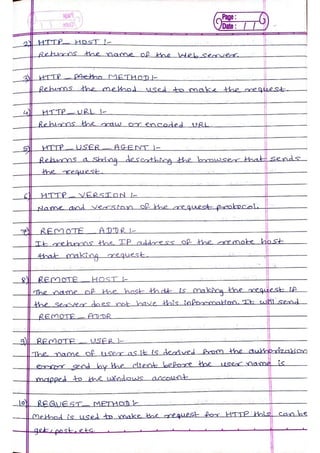 Page :
Date : / /
2) HTTP_ HOST :-
Returns the name of the Web server.
3) HTTP_ Metho METHOD:-
Returns the method used to make the request.
4) HTTP_URL :-
Returns the raw or encoded URL
5) HTTP_USER_AGENT :-
Returns a string describing the browser that sends
the request.
6) HTTP_ VERSION :-
Name and version of the request protocol.
7) REMOTE _ ADDR :-
It returns the IP address of the remote host
that making request.
8) REMOTE _ HOST :-
The name of the host that is making the request if
the server does not have this information. It will send
REMOTE_ADDR
9) REMOTE _ USER :-
The name of user as it is derived from the authorization
error send by the client before the user name is
mapped to the windows account
10) REQUEST_ METHOD :-
Method is used to make the request for HTTP this can be
get, post, etc.